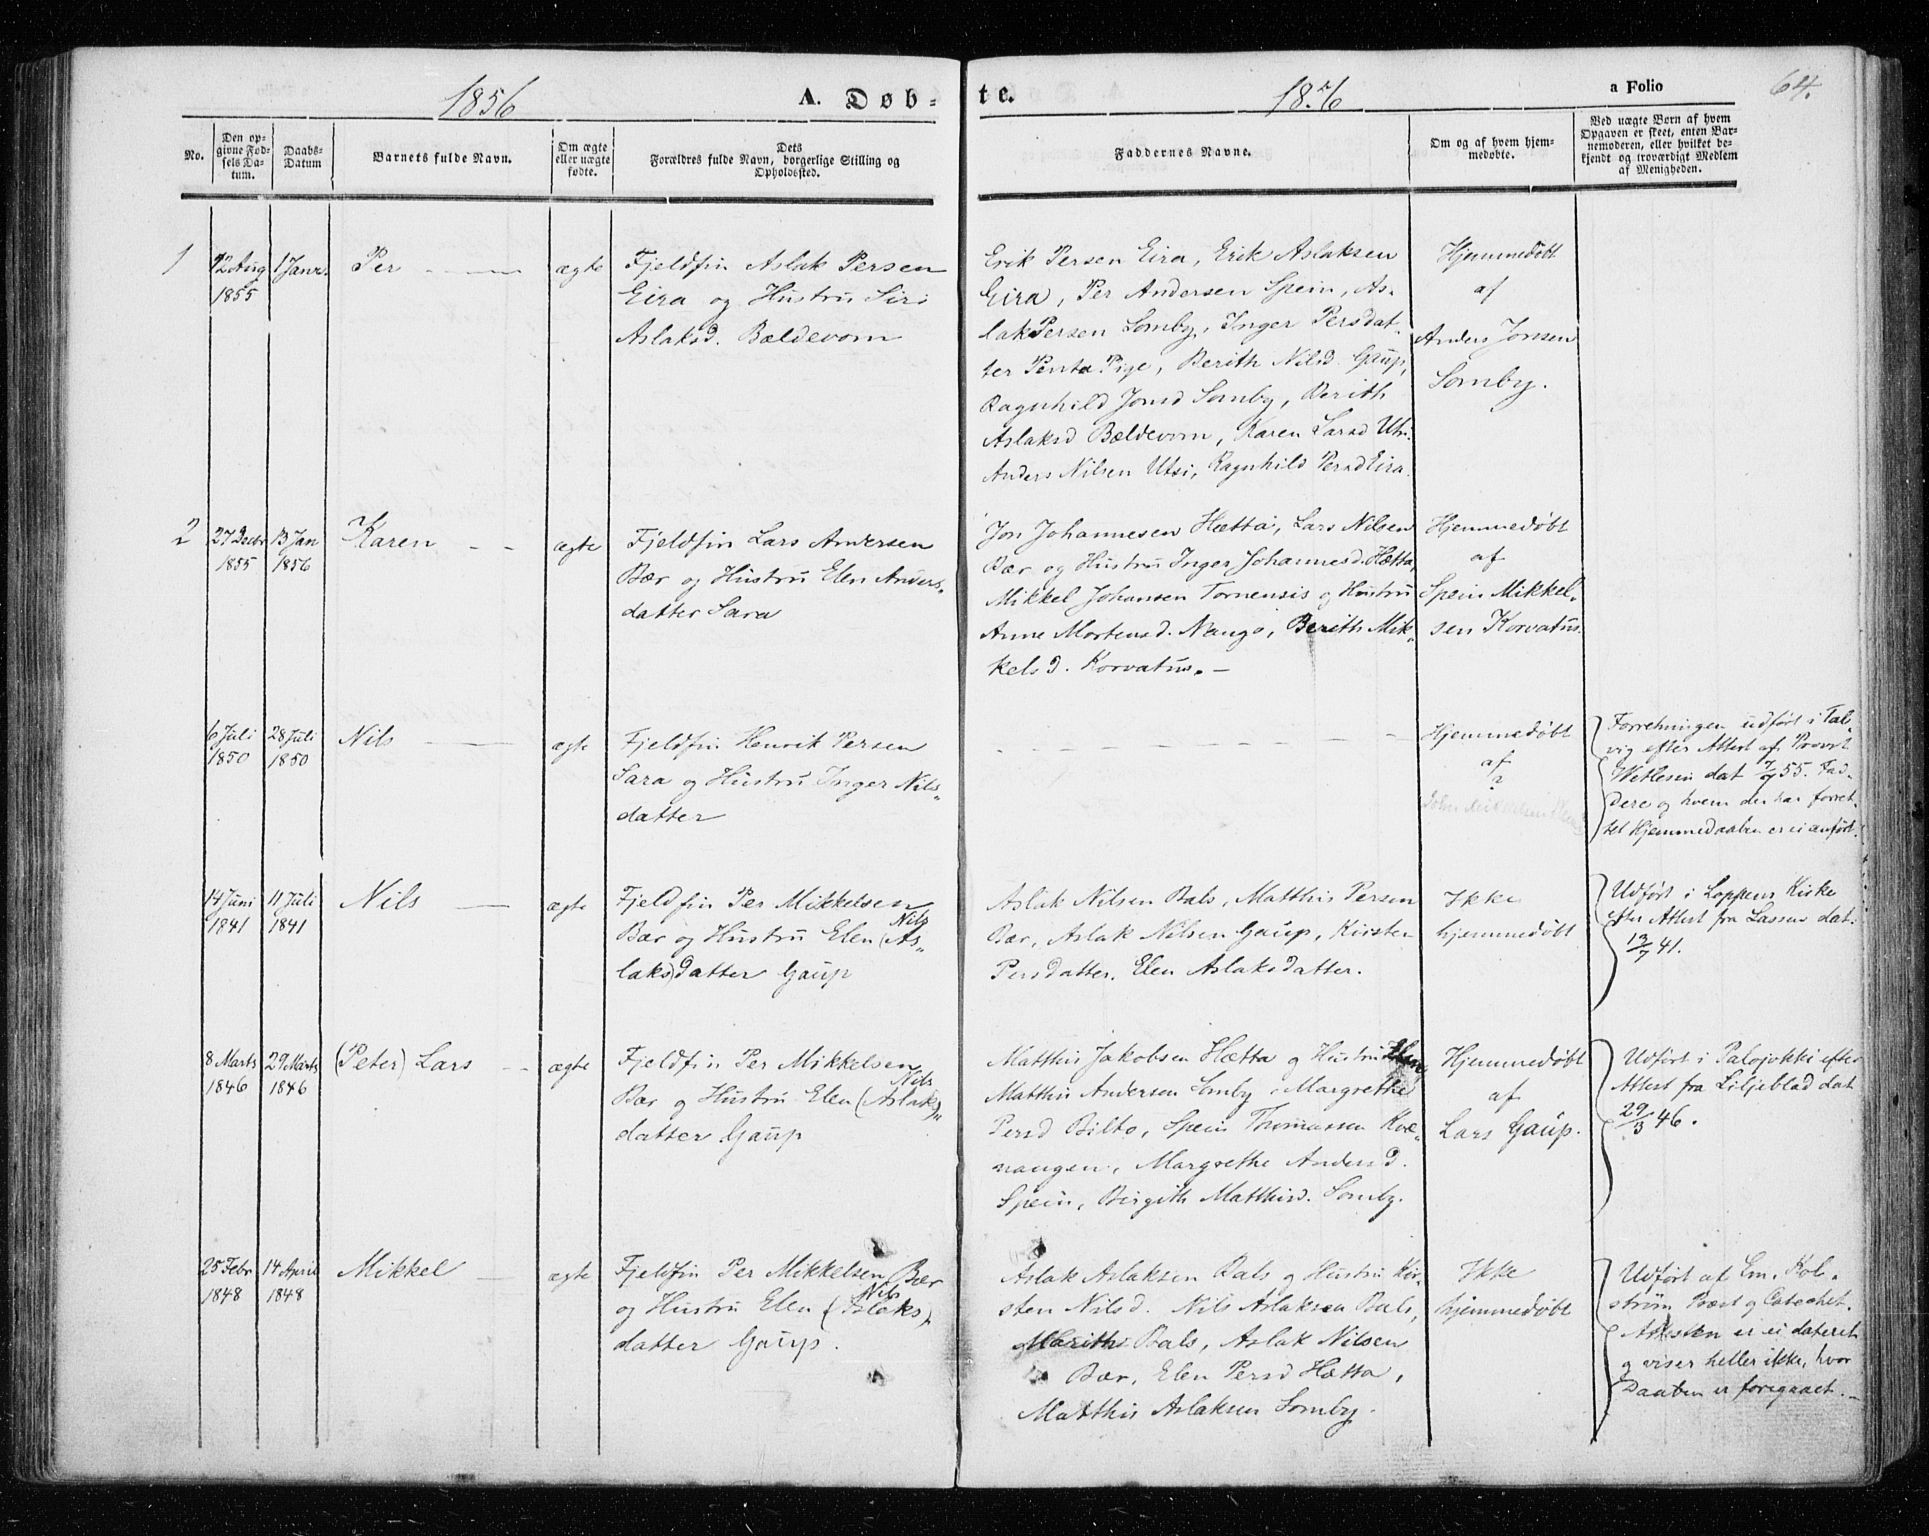 1856 A. Døb- te. 18 6 a Folio 64.
No.
Den op-
givne Fød-
sels Da-
tum.
Daabs-
Datum
Barnets fulde Navn.
Om ægte
eller uægte
fødte.
Dets
Forældres fulde Navn, borgerlige Stilling og
Opholdssted.
Faddernes Navne.
Om og af hvem hjem-
medøbte.
Ved uægte Børn af hvem
Opgaven er skeet, enten Bar-
nemoderen, eller hvilket be-
kjendt og troværdigt Medlem
af Menigheden.
1
12 Aug
1855
1 Janr.
Per
ægte
Fjeldfin Aslak Persen
Eira og Hustru Siri
Aslaksd. Bældevom
Erik Persen Eira, Erik Aslaksen
Eira, Per Andersen Spein, As-
lak Persen Somby, Inger Persdat-
ter Penta Pige, Berith Nilsd. Gaup,
Ragnhild Jonsd Somby, Berith
Aslaksd Bældevom, Karen Larsd Utsi
Anders Nilsen Utsi, Ragnhild Persd Eira.
Hjemmedøbt
af
Anders Jonsen
Somby.
2
27 Decbr
1855
13 Jan
1856
Karen
ægte
Fjeldfin Lars Andersen
Bær og Hustru Elen Anders-
datter Sara
Jon Johannesen Hætta, Lars Nilsen
Bær og Hustru Inger Johannesd. Hætta,
Mikkel Johansen Tornensis og Hustru
Anne Mortensd. Nango, Berith Mik-
kelsd. Korvatus. —
Hjemmedøbt
af
Spein Mikkel-
sen Korvatus.
6 Juli
1850
28 Juli
1850
Nils
ægte
Fjeldfin Henrik Persen
Sara og Hustru Inger Nils-
datter
Hjemmedøbt
af
?
Forretningen udført i Tal-
vig efter Attest af Provst
Wetlesen dat 7/7 55. Fad-
dere og hvem der har forret-
tet Hjemmedaaben er ei anført.
14 Juni
1841
11 Juli
1841
Nils
ægte
Fjeldfin Per Mikkelsen
Bær og Hustru Elen Nils (As-
laks)datter Gaup
Aslak Nilsen Bals, Matthis Persen
Bær, Aslak Nilsen Gaup, Kirsten
Persdatter, Elen Aslaksdatter.
Ikke
hjemmedøbt
Udført i Loppens Kirke
efter Attest fra Lassen dat.
13/7 41.
8 Marts
1846
29 Marts
1846
(Peter) Lars
ægte
Fjeldfin Per Mikkelsen
Bær og Hustru Elen Nils (Aslaks)-
datter Gaup
Matthis Jakobsen Hætta og Hustru Elen,
Matthis Andersen Somby, Margrethe
Persd Bilto, Spein Thomassen Kvæ-
nangen, Margrethe Andersd.
Spein, Birgith Matthisd. Somby.
Hjemmedøbt
af
Lars Gaup.
Udført i Palojokki efter
Attest fra Liljeblad dat
29/3 46.
25 Febr
1848
14 April
1848
Mikkel
ægte
Fjeldfin Per Mikkelsen Bær
og Hustru Elen Nils (Aslaks)-
datter Gaup.
Aslak Aslaksen Bals og Hustru Kir-
sten Nilsd. Nils Aslaksen Bals,
Marith Bals, Aslak Nilsen
Bær, Elen Persd Hætta,
Matthis Aslaksen Somby.
Ikke
hjemmedøbt
Udført af Em. Kol-
strøm Præst og Catechet.
Attesten er ei dateret
og viser heller ikke, hvor
Daaben er foregaaet.